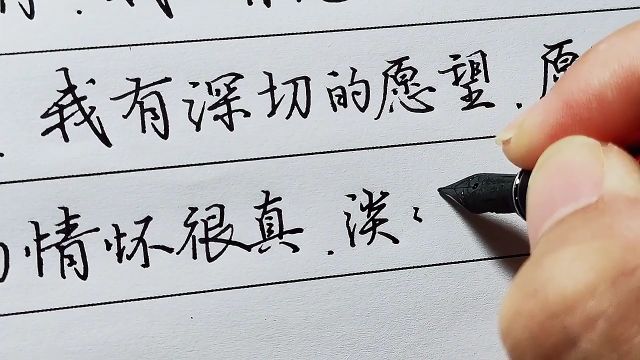 我有深切的愿望.愿
情怀很真.淡